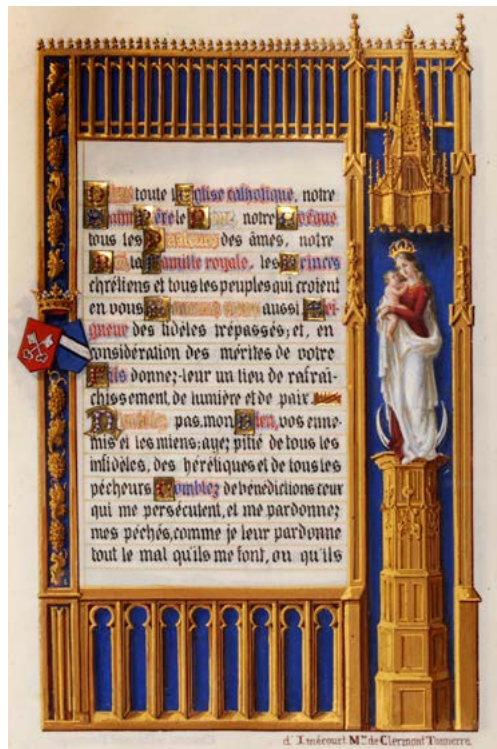 Bénis toute l'Église catholique, notre
Saint Père le Pape, notre Évêque
tous les Pasteurs des âmes, notre
Roi, la Famille royale, les Princes
chrétiens et tous les peuples qui croient
en vous. aussi Sei-
gneur des fidèles trépassés; et, en
considération des mérites de votre
Fils donnez-leur un lieu de rafraî-
chissement, de lumière et de paix.
pas, mon Dieu, vos enne-
mis et les miens; ayez pitié de tous les
infidèles, des hérétiques et de tous les
pécheurs. Comblez de bénédictions ceux
qui me persécutent, et me pardonnez
mes péchés, comme je leur pardonne
tout le mal qu'ils me font, ou qu'ils
d'Imécourt Mse de Clermont Tonnerre.